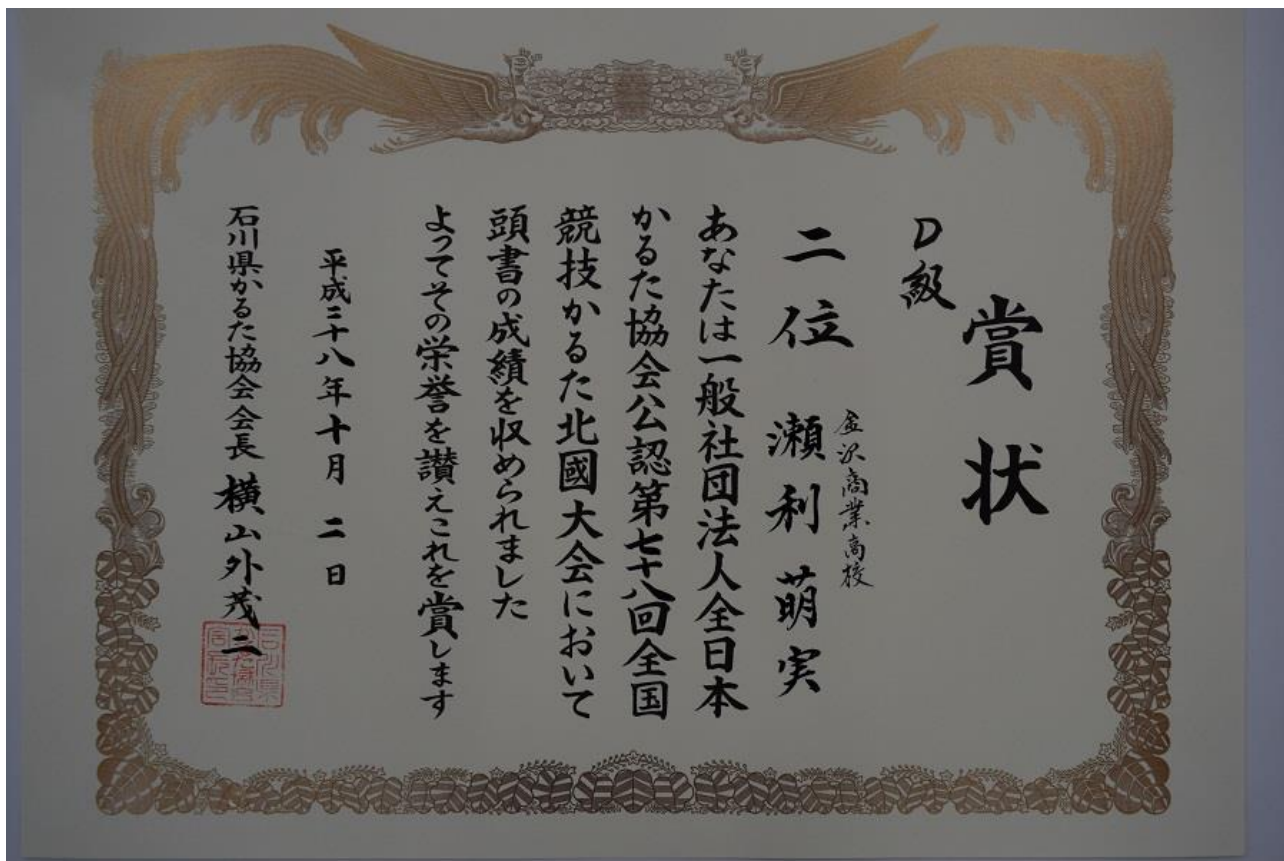 賞状
D級
金沢商業高校
二位 瀬利萌実
あなたは一般社団法人全日本
かるた協会公認第七十八回全国
競技かるた北國大会において
頭書の成績を収められました
よってその栄誉を讃えこれを賞します
平成二十八年十月二日
石川県かるた協会会長 横山外茂二